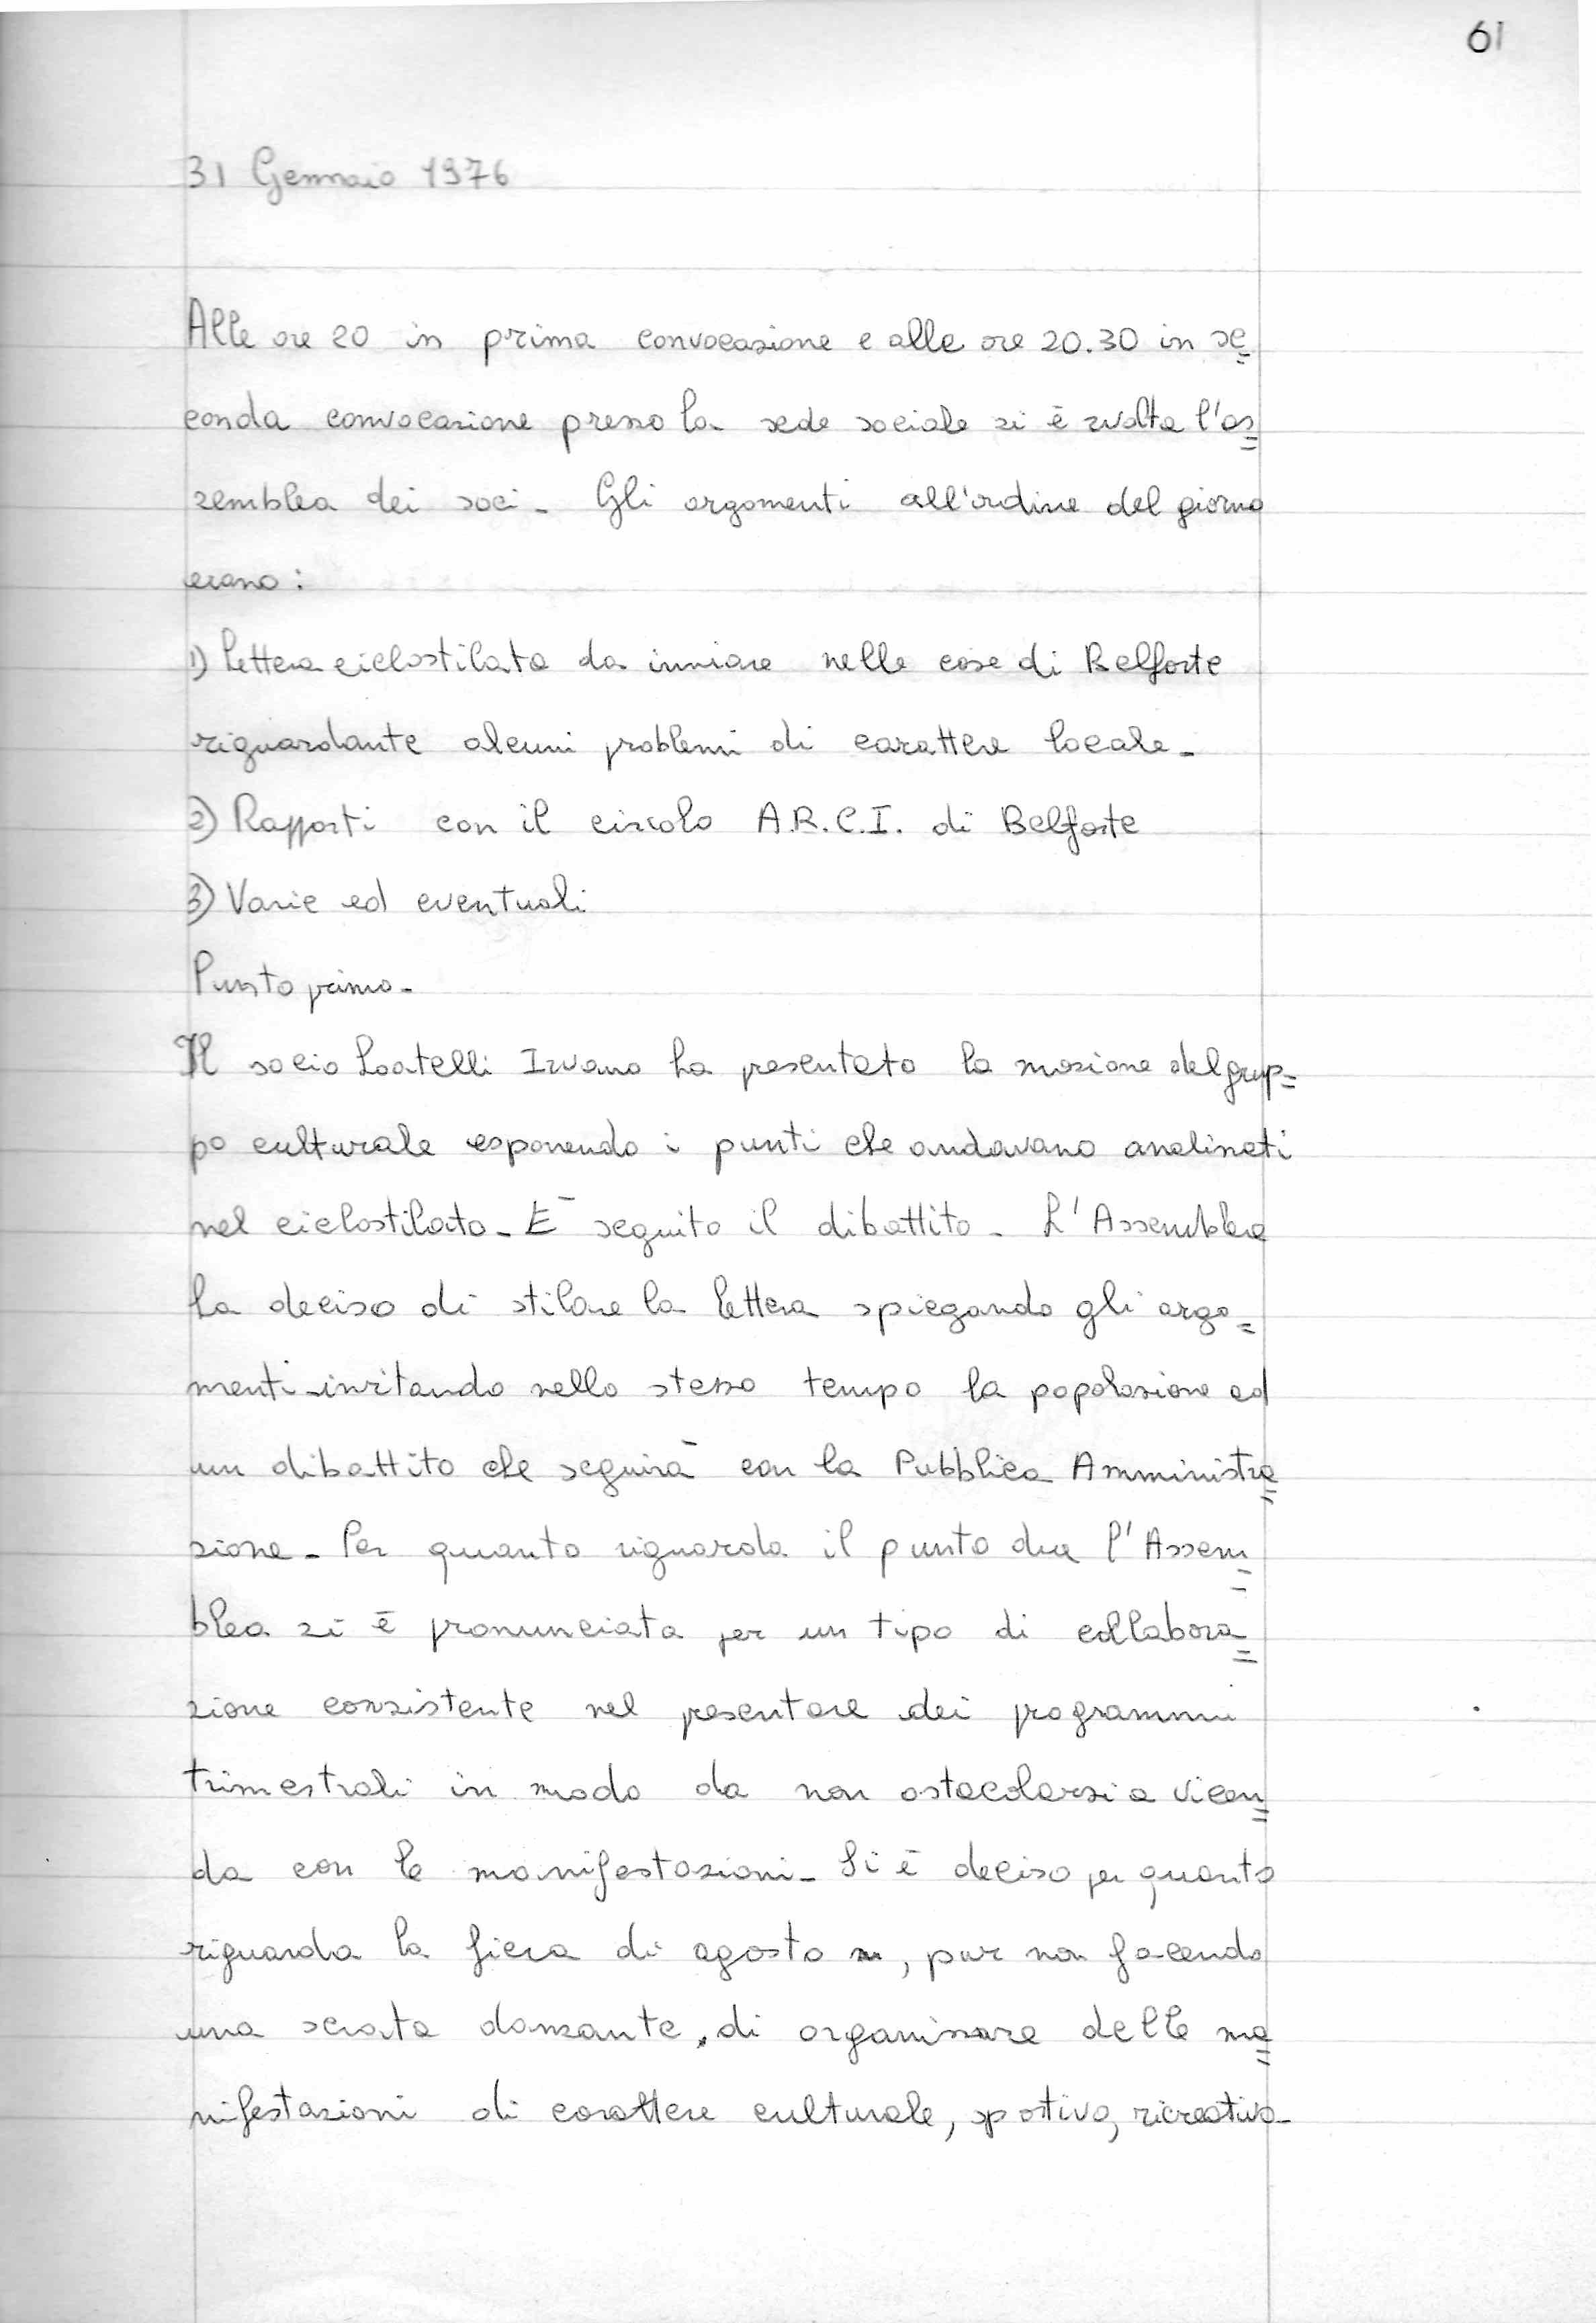 61
31 Gennaio 1976
Alle ore 20 in prima convocazione e alle ore 20.30 in se=
conda convocazione presso la sede sociale si è svolta l'as=
semblea dei soci - Gli argomenti all'ordine del giorno
erano:
1) Lettera ciclostilata da inviare nelle case di Belforte
riguardante alcuni problemi di carattere locale -
2) Rapporti con il circolo A.R.C.I. di Belforte
3) Varie ed eventuali
Punto primo -
Il socio Loatelli Ivano ha presentato la mozione del grup=
po culturale esponendo i punti che andavano analizzati
nel ciclostilato - È seguito il dibattito - L'Assemblea
ha deciso di stilare la lettera spiegando gli argo=
menti invitando nello stesso tempo la popolazione ad
un dibattito che seguirà con la Pubblica Amministra=
zione - Per quanto riguarda il punto due l'Assem=
blea si è pronunciata per un tipo di collabora=
zione consistente nel presentare dei programmi
trimestrali in modo da non ostacolarsi a vicen=
da con le manifestazioni - Si è deciso per quanto
riguarda la fiera di agosto, pur non facendo
una serata danzante, di organizzare delle ma=
nifestazioni di carattere culturale, sportivo, ricreativo -